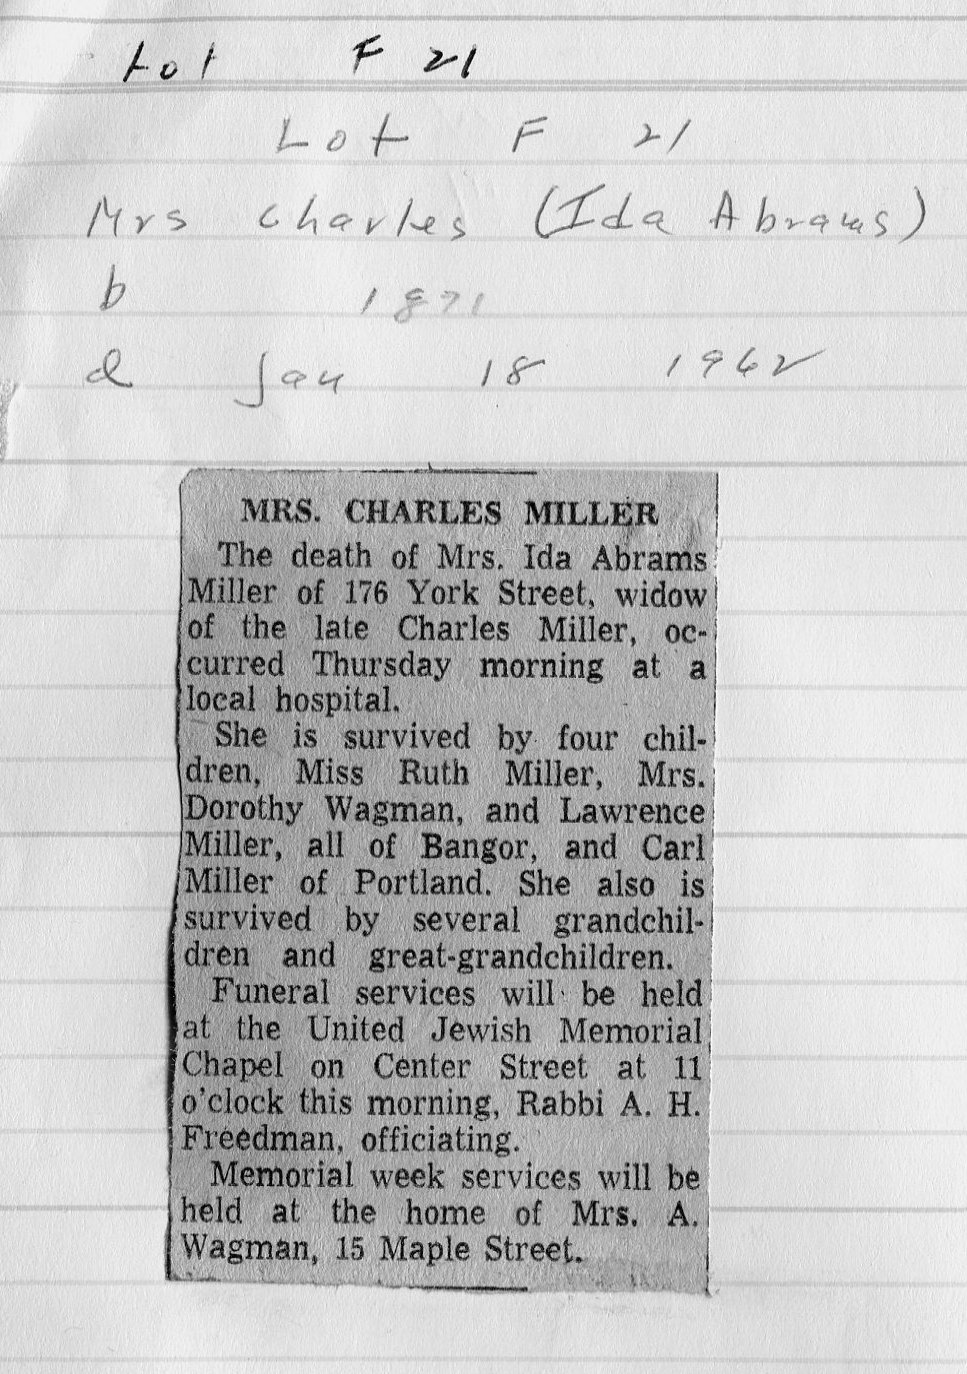 Lot F 21
Lot F 21
Mrs Charles (Ida Abrams)
b 1871
d Jan 18 1962
MRS. CHARLES MILLER
The death of Mrs. Ida Abrams
Miller of 176 York Street, widow
of the late Charles Miller, oc-
curred Thursday morning at a
local hospital.
She is survived by four chil-
dren, Miss Ruth Miller, Mrs.
Dorothy Wagman, and Lawrence
Miller, all of Bangor, and Carl
Miller of Portland. She also is
survived by several grandchil-
dren and great-grandchildren.
Funeral services will be held
at the United Jewish Memorial
Chapel on Center Street at 11
o'clock this morning, Rabbi A. H.
Freedman, officiating.
Memorial week services will be
held at the home of Mrs. A.
Wagman, 15 Maple Street.